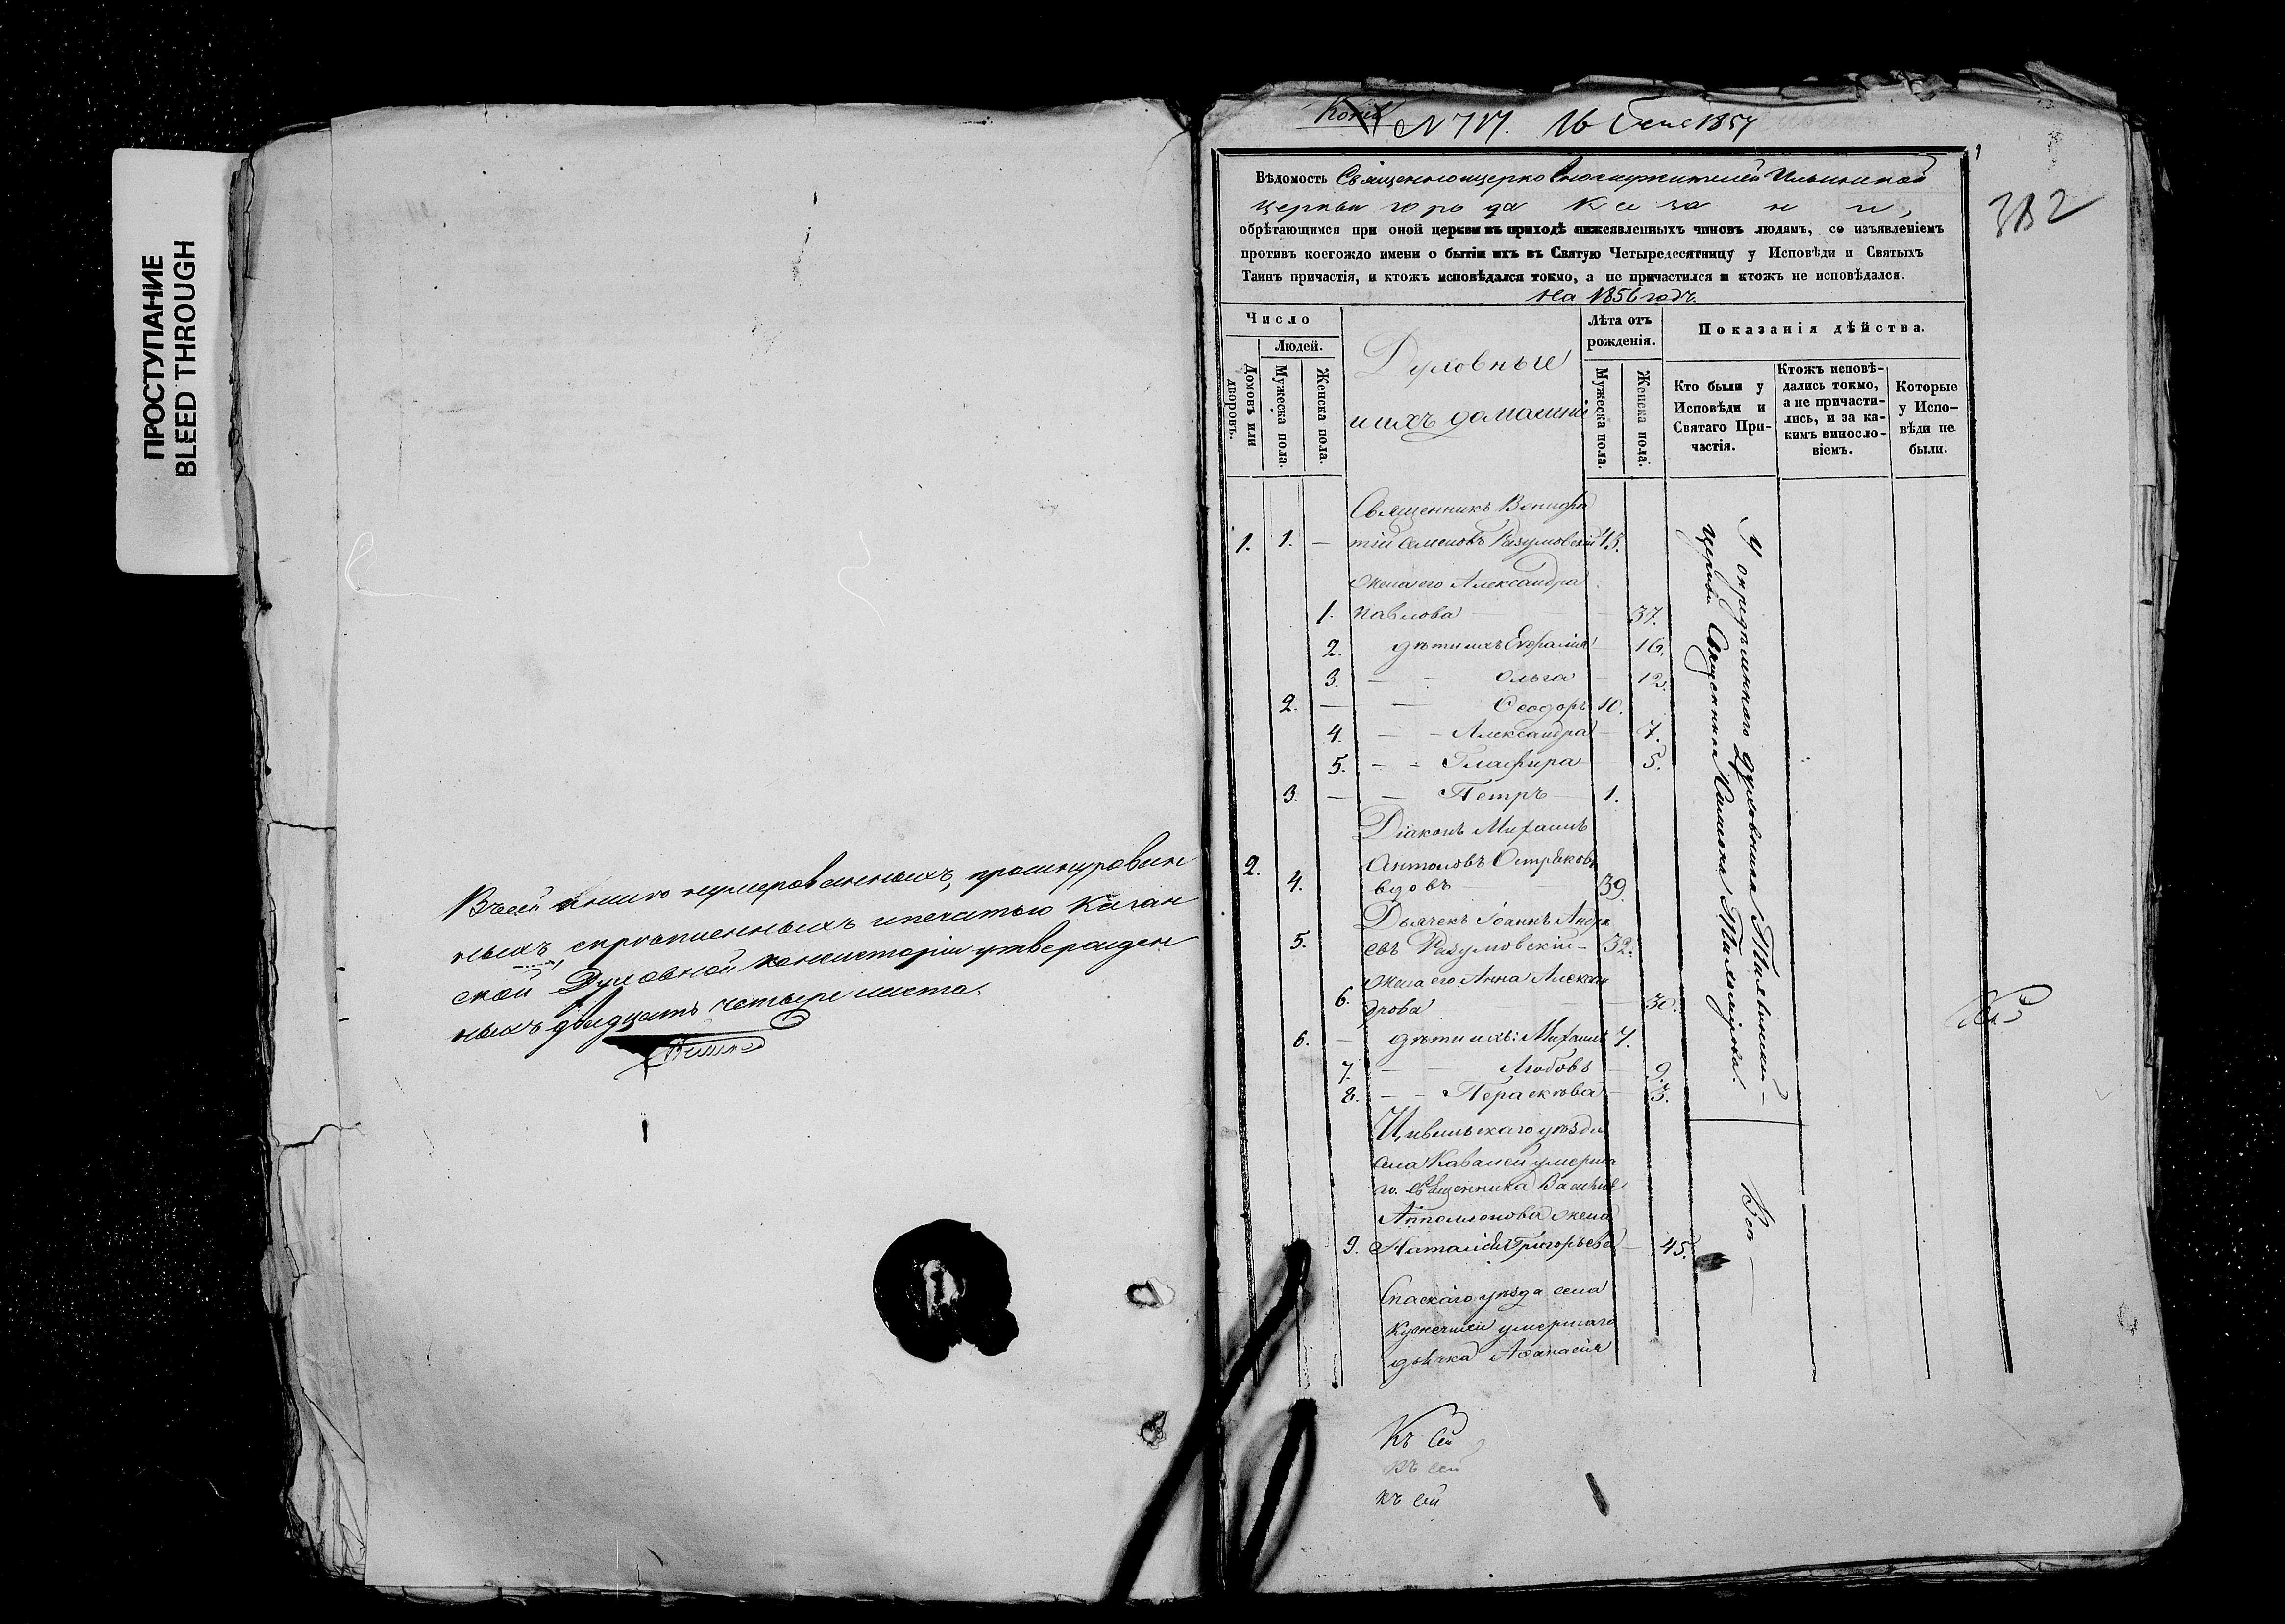 ПРОСТУПАНИЕ
BLEED THROUGH
Въ сей книге нумерованныхъ, прошнурован
ныхъ, скрѣпленныхъ и печатью Казан
ской Духовной консисторіи утвержден
ныхъ двадцать четыре листа.
Копія № 717. 16 1857
382
Вѣдомость Священноцерковнослужителей Ильинской
церкви города Казани,
обрѣтающимся при оной церкви въ приходѣ нижеявленныхъ чиновъ людямъ, со изъявленіемъ
противъ коегождо имени о бытіи ихъ въ Святую Четыредесятницу у Исповѣди и Святыхъ
Таинъ причастія, и ктожъ исповѣдался токмо, а не причастился и ктожъ не исповѣдался.
на 1856 годъ.
Число
Людей.
Домовъ или дворовъ.
Мужеска пола.
Женска пола.
Духовные
и ихъ домашніе
Лѣта отъ
рожденія.
Мужеска пола.
Женска пола.
Показанія дѣйства.
Кто были у
Исповѣди и
Святаго При-
частія.
Ктожъ исповѣ-
дались токмо,
а не причасти-
лись, и за ка-
кимъ виносло-
віемъ.
Которые
у Испо-
вѣди не
были.
Священникъ Вонифа
1. 1. — тій Семеновъ Разумовскій 43.
жена его Александра
1. Павлова — 37.
2. дѣти ихъ: 16.
3. — — Ольга — 12.
2. — — Ѳеодоръ 10.
4. — — Александра — 7.
5. — — Глафира — 5.
3. — — Петръ — 1.
Діаконъ Михаилъ
2. Антоновъ Остряковъ
4. вдовъ — 39.
Дьячекъ Іоаннъ Андре
5. евъ Разумовскій — 32.
жена его Анна Алексан
6. дрова — 30.
6. — дѣти ихъ: Михаилъ 7.
7. — — Любовь — 9.
8. — — Параскева — 3.
Цивильскаго уѣзда
села Ковалей умерша
го священника Василія
Апполлонова жена
9. Наталія Григорьева — 45.
Спаскаго уѣзда села
Кузнечихи умершаго
дьячка Аѳанасія
У опредѣленнаго духовника Тихвинской
церкви Священника
Всѣ
Къ сей
къ сей
къ сей